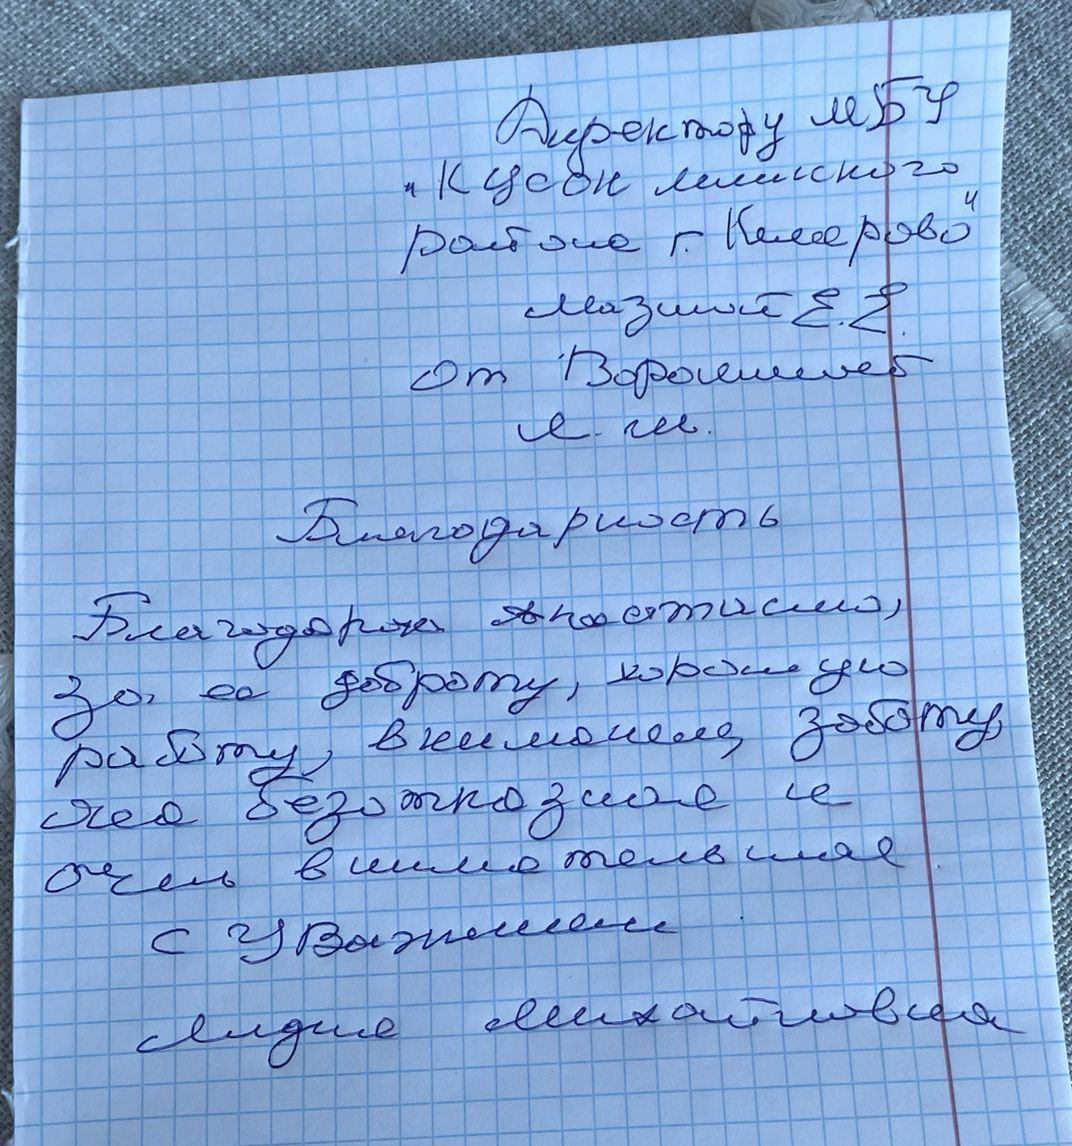 Директору МБУ
"КЦСОН Ленинского
района г. Кемерово"
Мазиной Е.Е.
От
Л. М.
Благодарность
Благодарна Анастасию,
за ее доброту, хорошую
работу, внимание, заботу,
она безотказная и
очень внимательная.
С Уважением
Лидия Михайловна